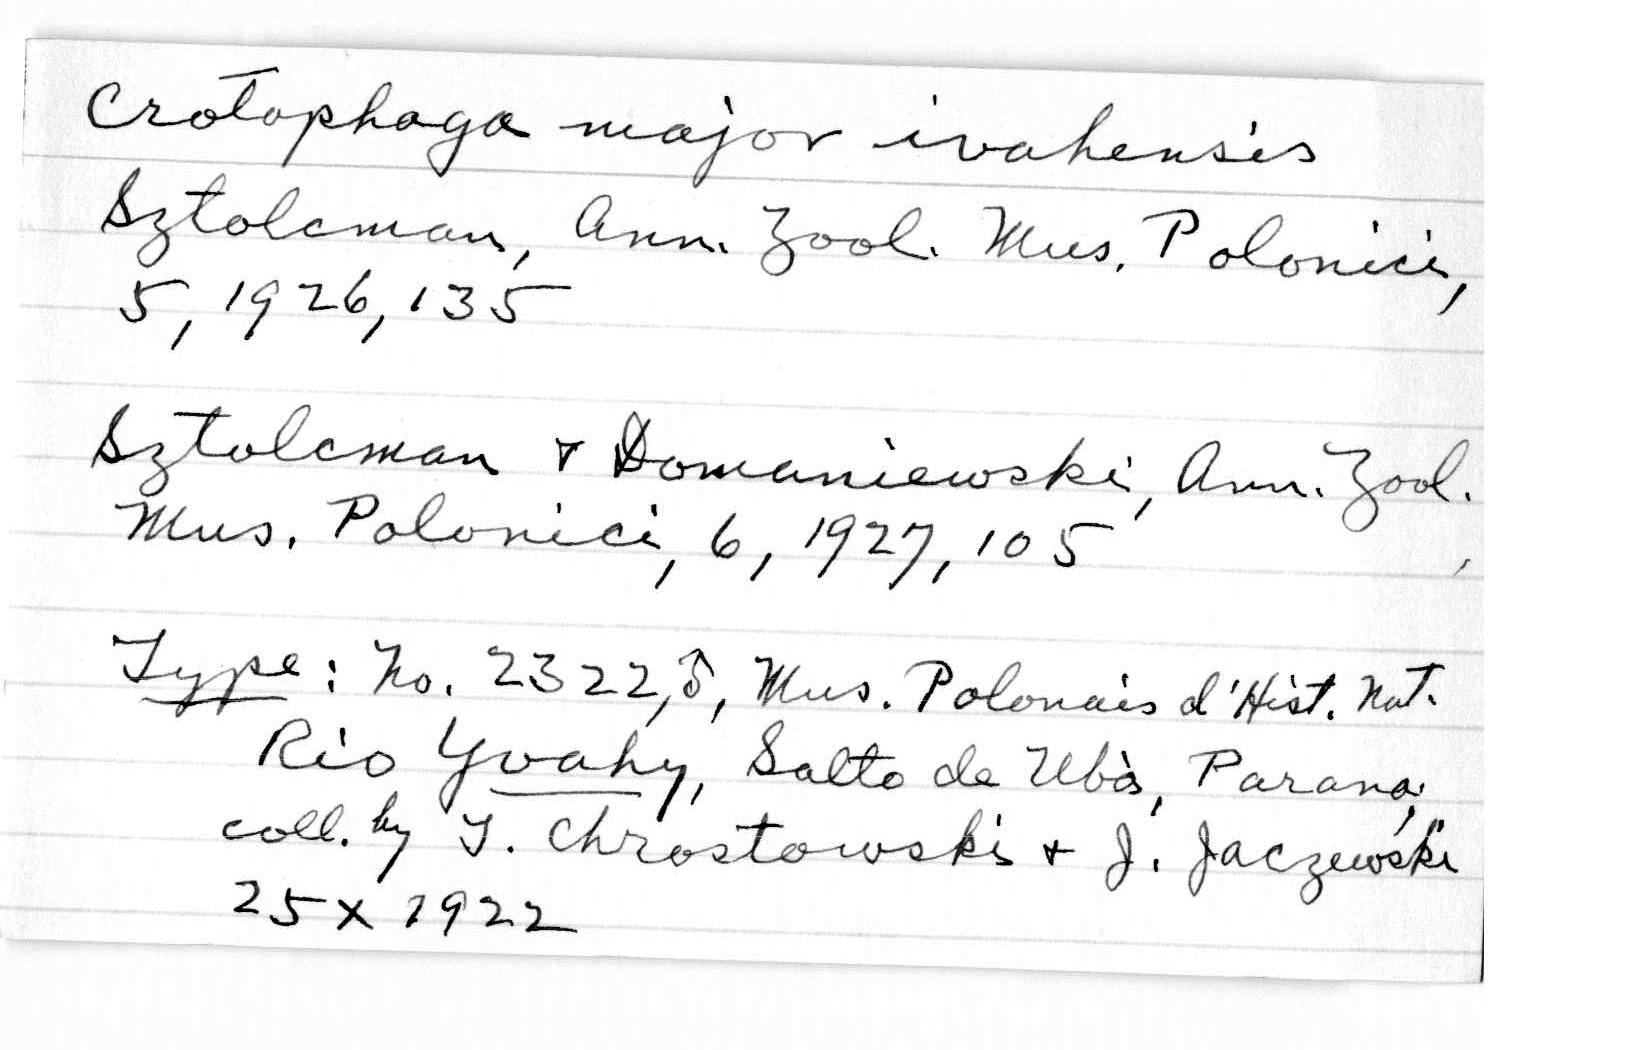 Crotophaga major ivahensis
Sztolcman, Ann. Zool. Mus. Polonici,
5, 1926, 135
Sztolcman & Domaniewski, Ann. Zool.
Mus. Polonici, 6, 1927, 105
Type: No. 2322, ♂, Mus. Polonais d'Hist. Nat.
Rio Yvahy, Salto de Ubà, Paraná,
coll. by T. Chrostowski & J. Jaczewski
25 X 1922